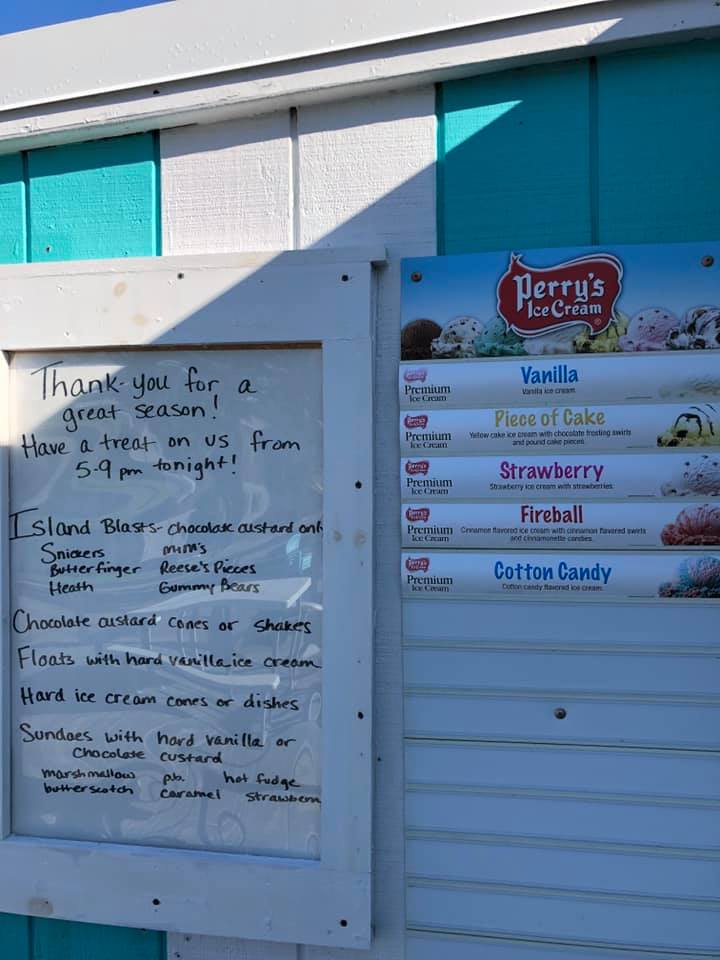 Thank-you for a
great season!
Have a treat on us from
5-9 pm tonight!
Island Blasts- chocolate custard only
Snickers m&m's
Butterfinger Reese's Pieces
Heath Gummy Bears
Chocolate custard cones or shakes
Floats with hard vanilla ice cream
Hard ice cream cones or dishes
Sundaes with hard vanilla or
chocolate custard
marshmallow p.b. hot fudge
butterscotch caramel strawberry
Perry's
Ice Cream
Perry's
Premium
Ice Cream
Vanilla
Vanilla ice cream.
Perry's
Premium
Ice Cream
Piece of Cake
Yellow cake ice cream with chocolate frosting swirls
and pound cake pieces.
Perry's
Premium
Ice Cream
Strawberry
Strawberry ice cream with strawberries.
Perry's
Premium
Ice Cream
Fireball
Cinnamon flavored ice cream with cinnamon flavored swirls
and cinnamonette candies.
Perry's
Premium
Ice Cream
Cotton Candy
Cotton candy flavored ice cream.